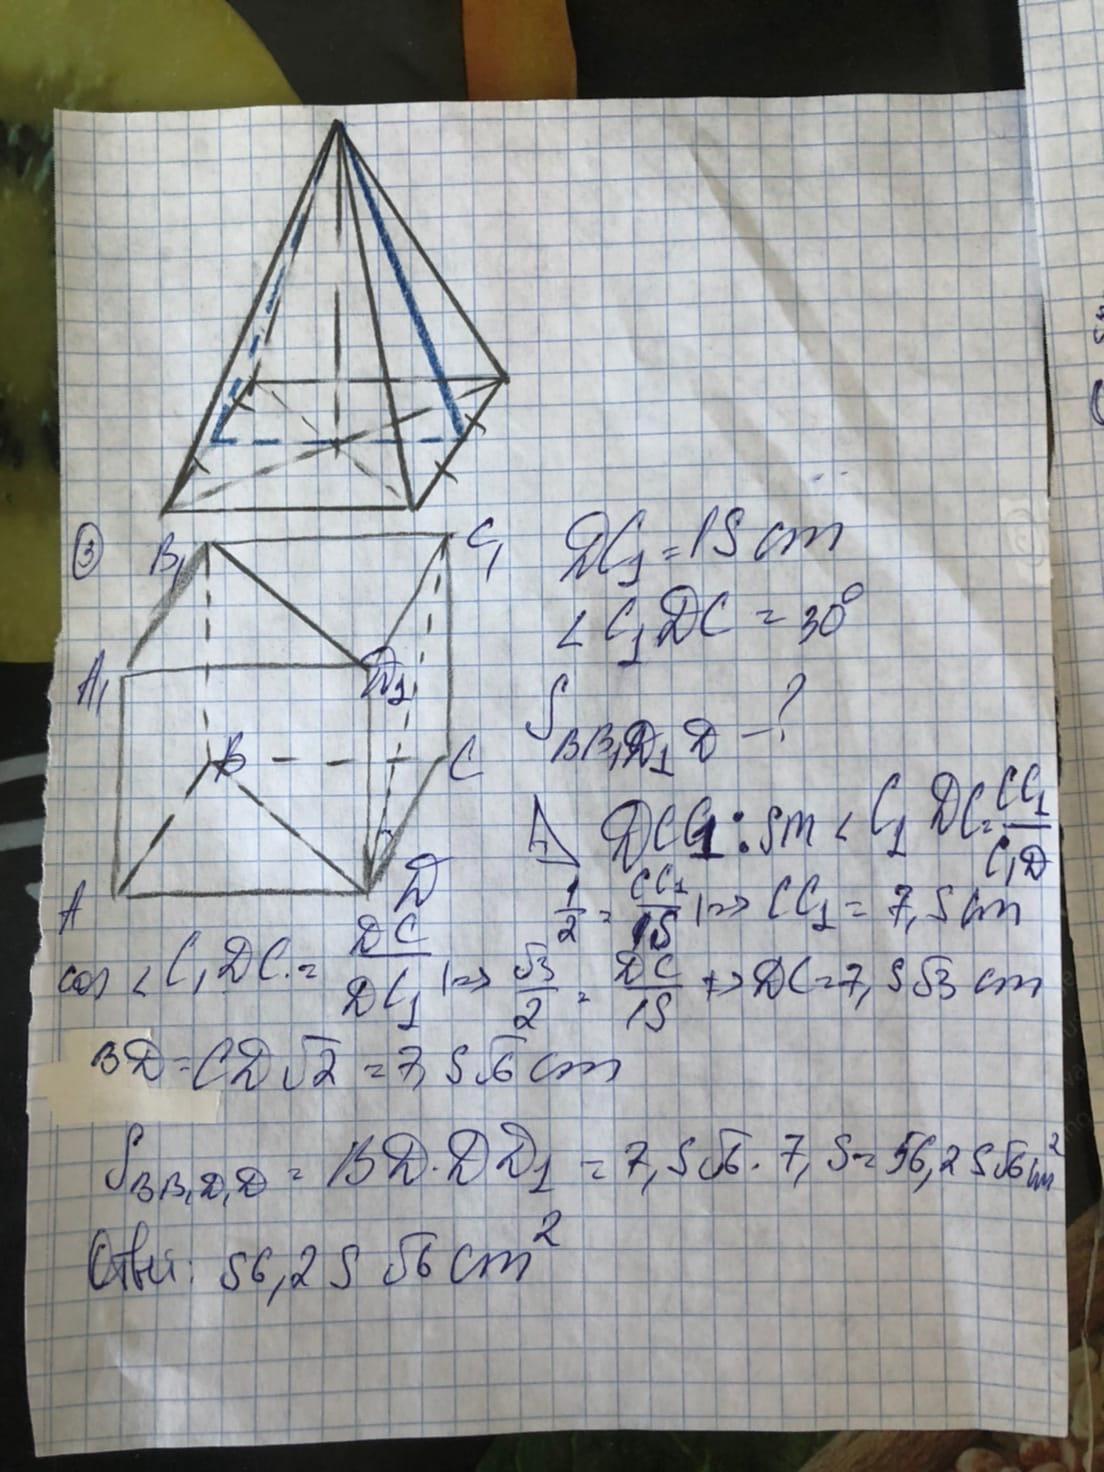 ③ B₁ C₁ DC₁ = 15 cm
∠ C₁DC = 30°
A₁ D₁
S BB₁D₁D - ?
B C
△ DCC₁: sin ∠ C₁DC = CC₁/C₁D
A D
1/2 = CC₁/15 |=> CC₁ = 7,5 cm
cos ∠ C₁DC = DC/DC₁ |=> √3/2 = DC/15 => DC = 7,5√3 cm
BD = CD√2 = 7,5√6 cm
S BB₁D₁D = BD · DD₁ = 7,5√6 · 7,5 = 56,25√6 cm²
Ответ: 56,25√6 cm²